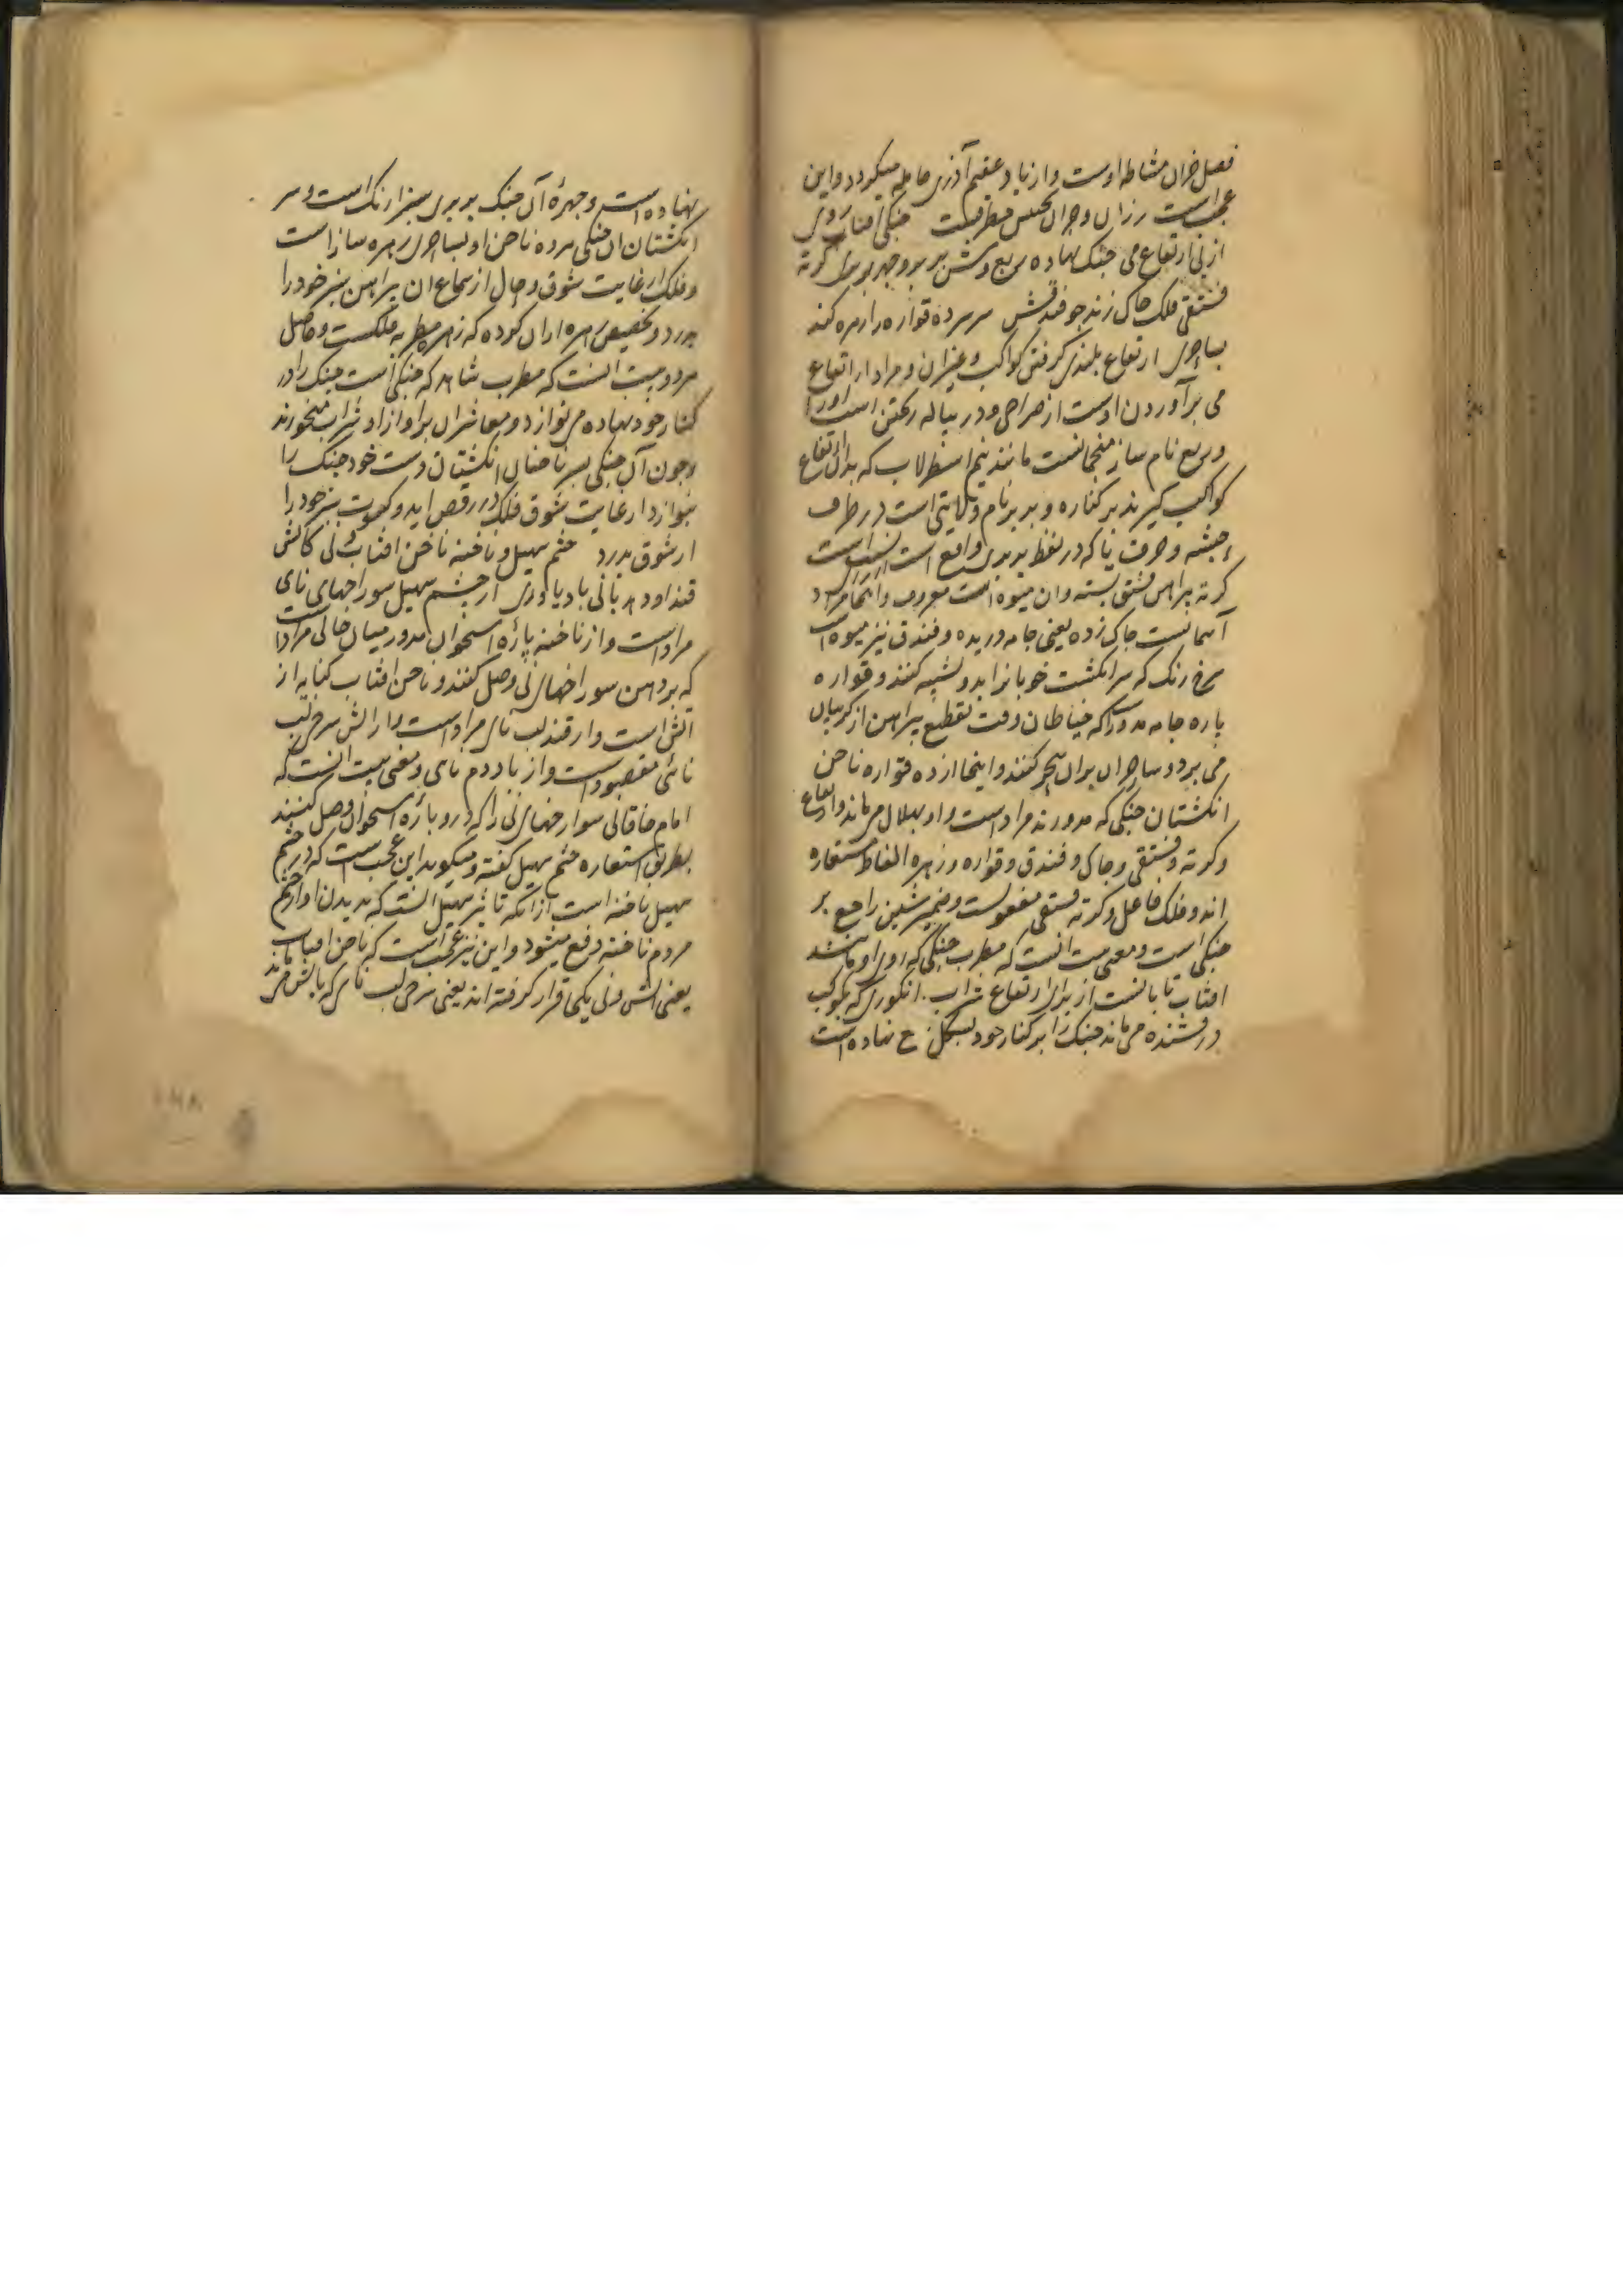 فصل خزان مشاطه اوست و از باد عقیم آذری حامله میکردد و این
عجب است رزان و خزان تجنیس مطرفست جنکی آفتاب روی
از پی ارتفاع می جنک نهاده ربع وش بر بر و چهر بربری کرته
فستقی فلک چاک زند چو فندقش سر سر ده قواره را زهره کند
بساحری ارتفاع بلندی کرفتن کواکب و غیر آن و مراد از ارتفاع
می برآوردن اوست از صراحی و در پیاله ریختن است او را
و ربع نام ساز منجمانست مانند نیم اسطرلاب که بدان ارتفاع
کواکب کیرند بر کناره و بربر نام ولایتی است در طرف
حبشه و حرف یا که در لفظ بربری واقع است
کرته پیراهن فستق پسته و ان میوه است معروف و اینجا مراد
آسمانست چاک زده یعنی جامه دریده و فندق نیز میوه است
سرخ رنک که سر انکشت خوبان را بدو تشبیه کنند و قواره
پاره جامه مدور را که خیاطان وقت تقطیع پیراهن از کریبان
می برند و ساحران بران سحر کنند و اینجا از ده قواره ناخن
انکشتان جنکی که مدورند مراد است و او بهلال می ماند و ارتفاع
و کرته و فستقی و چاک و فندق و قواره و زهره الفاظ مستعاره
اند و فلک فاعل و کرته فستقی مفعولست و ضمیر شین راجع بر
جنکی است و معنی بیت انست که مطرب جنکی که روی او مانند
افتاب تابانست از برای ارتفاع شراب انکوری که بکوکب
درخشنده می ماند جنک را بر کنار خود بشکل ربع نهاده است
نهاده است و چهرهٔ آن جنک بربری سبز ارنک است و سر
انکشتان ان جنکی سر ده ناخن او بساحری زهره ساز است
و فلک از غایت شوق و حال از سماع ان پیراهن سبز خود را
میدرد و تخصیص زهره از ان کوده که زهره مطربه فلکست و حاصل
هر دو بیت انست که مطرب شاهد که جنکی است جنک را در
کنار خود نهاده می نوازد و معاشران براواز او شراب میخورند
و چون آن جنکی بسر ناخنان انکشتان دست خود جنک را
بنوازد از غایت شوق فلک در رقص اید و کسوت سبز خود را
از شوق بدرد چشم سهیل و ناخنه ناخن افتاب و نی کاتش
قند او دهد با نی باد یاوری از چشم سهیل سوراخهای نای
مراد است و از ناخنه پارهٔ استخوان مدور میان خالی مراد است
که بر دهن سوراخهای نی وصل کنند و ناخن افتاب کنایه از
آتش است و از قند لب نای مراد است و از آتش سرخی لب
نائی مقصود است و از باد دم نای و معنی بیت انست که
امام خاقانی سوراخهای نی را که درو پارهٔ استخوان وصل کنند
بطریق استعاره چشم سهیل کفته و میکوید این عجب است که در چشم
سهیل ناخنه است از انکه تاثیر سهیل انست که بدیدن او از چشم
مردم ناخنه دفع میشود و این نیز عجب است که ناخن افتاب
یعنی آتش و نی یکجا قرار کرفته اند یعنی سرخی لب نای که باتش می ماند